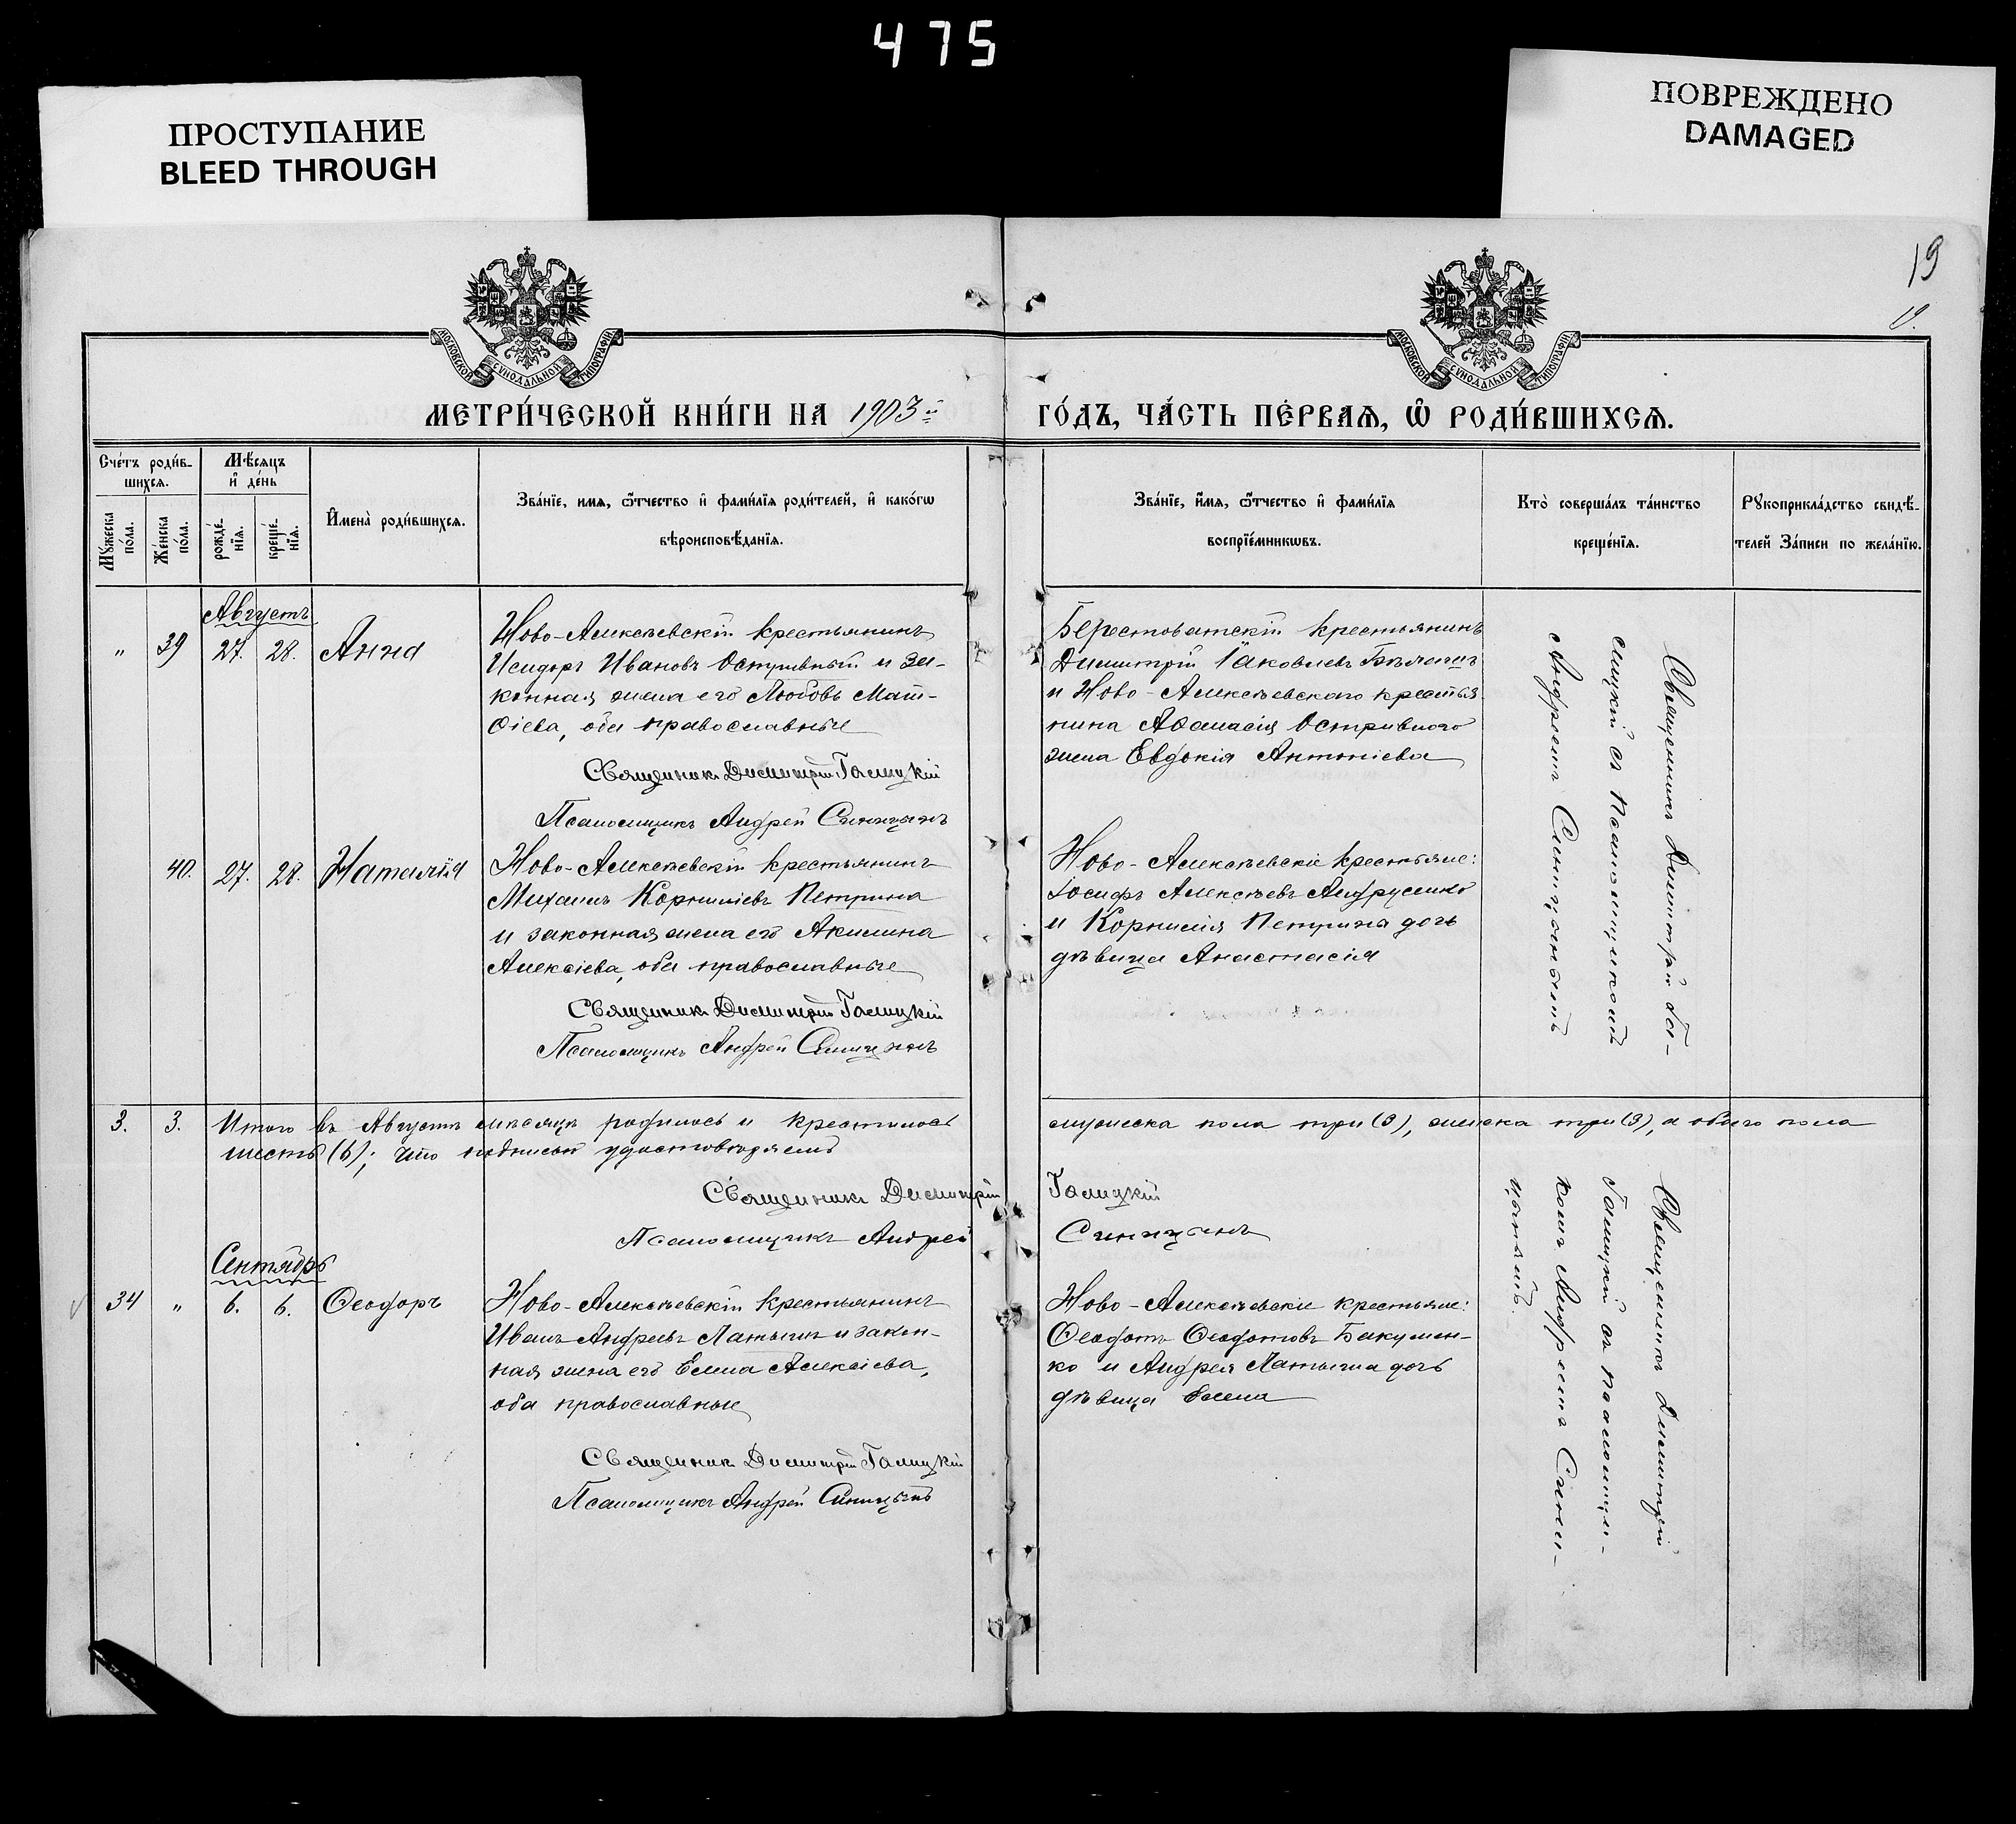 475
ПРОСТУПАНИЕ
BLEED THROUGH
ПОВРЕЖДЕНО
DAMAGED
19
МОСКОВСКОЙ СѴНОДАЛЬНОЙ ТИПОГРАФІИ
МОСКОВСКОЙ СѴНОДАЛЬНОЙ ТИПОГРАФІИ
МЕТРИ́ЧЕСКОЙ КНИ́ГИ НА 1903 й
ГО́ДЪ, ЧА́СТЬ ПЕ́РВАѦ, Ѡ҆ РОДИ́ВШИХСѦ.
Сче́тъ роди́в-
шихсѧ.
Мѣ́сѧцъ
и҆ де́нь
Мꙋ́жеска
по́ла.
Же́нска
по́ла.
рожде́-
нїѧ.
креще́-
нїѧ.
И҆мена̀ роди́вшихсѧ.
Зва́нїе, имѧ, ѻ҆́тчество и҆ фами́лїѧ роди́телей, и҆ како́гѡ
вѣроисповѣ́данїѧ.
Зва́нїе, и҆́мѧ, ѻ҆́тчество и҆ фами́лїѧ
воспрїе́мникѡвъ.
Кто̀ соверша́лъ та́инство
креще́нїѧ.
Рꙋкоприкла́дство свидѣ́-
телей За́писи по жела́нїю.
Августъ
" 39 27. 28. Анна
Ново-Алексѣевскій крестьянинъ
Исидоръ Ивановъ Остривный и за-
конная жена его Любовь Мат-
ѳіева, оба православные
Священникъ Димитрій Галицкій
Псаломщикъ Андрей Синицынъ
Берестоватскій крестьянинъ
Димитрій Іаковлевъ
и Ново-Алексѣевскаго крестья-
нина Аѳанасія Остривного
жена Евдокія Антоніева
Священникъ Димитрій Га-
лицкій съ псаломщикомъ
Андреемъ Синицынымъ
40. 27. 28. Наталія
Ново-Алексѣевскій крестьянинъ
Михаилъ Корниліевъ Петрина
и законная жена его Акилина
Алексіева, оба православные
Священникъ Димитрій Галицкій
Псаломщикъ Андрей Синицынъ
Ново-Алексѣевскіе крестьяне:
Іосифъ Алексѣевъ Андрусенко
и Корнилія Петрина дочь
дѣвица Анастасія
3. 3. Итого въ Августѣ мѣсяцѣ родилось и крестилось мужеска пола три (3), женска три (3), а обоего пола
шесть (6); что подписью удостовѣряемъ
Священникъ Димитрій Галицкій
Псаломщикъ Андрей Синицынъ
Сентябрь
34 " 6. 6. Ѳеодоръ
Ново-Алексѣевскій крестьянинъ
Иванъ Андреевъ Латышъ и закон-
ная жена его Елена Алексіева,
оба православные
Священникъ Димитрій Галицкій
Псаломщикъ Андрей Синицынъ
Ново-Алексѣевскіе крестьяне:
Ѳеодотъ Ѳеодотовъ Бакумен-
ко и Андрея Латыша дочь
дѣвица Елена
Священникъ Димитрій
Галицкій съ псаломщи-
комъ Андреемъ Сини-
цынымъ.